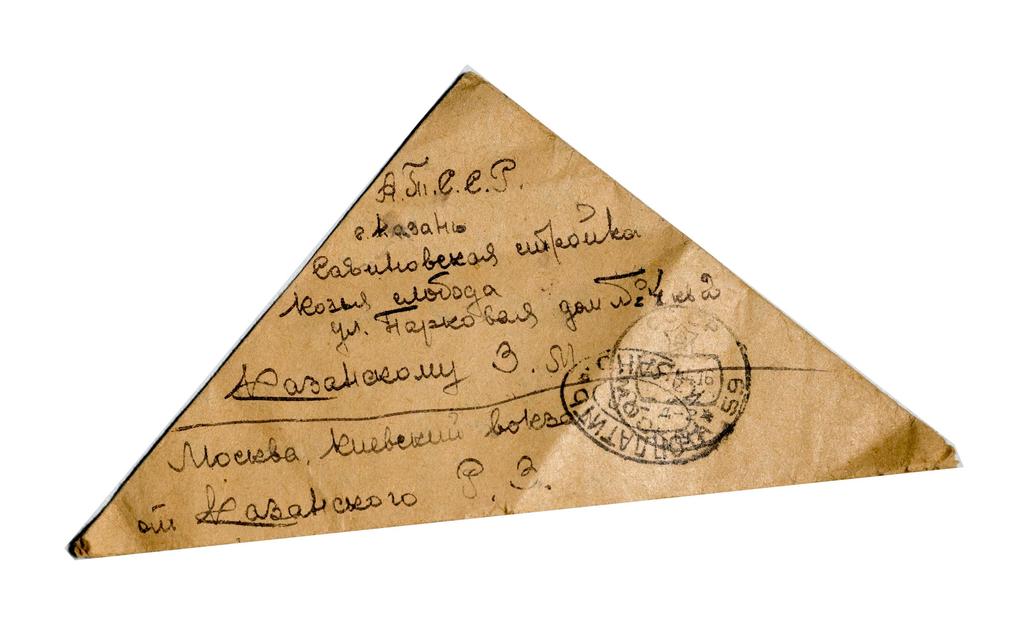 А.Т.С.С.Р.
г. Казань
Савиновская стройка
Козья слобода
ул. Парковая дом № 4 кв 2
Казанскому З. М.
Москва, Киевский вокза
от Казанского Р. З.
ДОПЛАТИТЬ
КАЗАНЬ
59